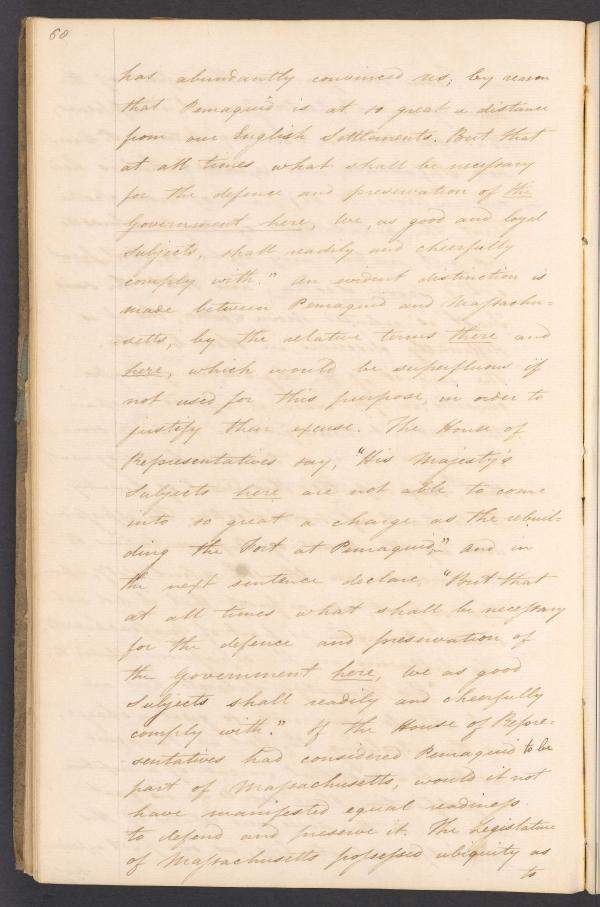 68
has abundantly convinced us; by reason
that Pemaquid is at so great a distance
from our English Settlements. But that
at all times what shall be necessary
for the defence and preservation of the
Government here, We, as good and loyal
Subjects, shall readily and cheerfully
comply with." An evident distinction is
made between Pemaquid and Massachu=
=setts, by the relative terms there and
here, which would be superfluous if
not used for this purpose, in order to
justify their excuse. The House of
Representatives say, "His Majesty's
Subjects here are not able to come
into so great a charge as the rebuil=
ding the Fort at Pemaquid," and in
the next sentence declare, "But that
at all times what shall be necessary
for the defence and preservation of
the Government here, We as good
Subjects shall readily and cheerfully
comply with." If the House of Repre=
=sentatives had considered Pemaquid to be
part of Massachusetts, would it not
have manifested equal readiness
to defend and preserve it. The Legislature
of Massachusetts possessed ubiquity as
to